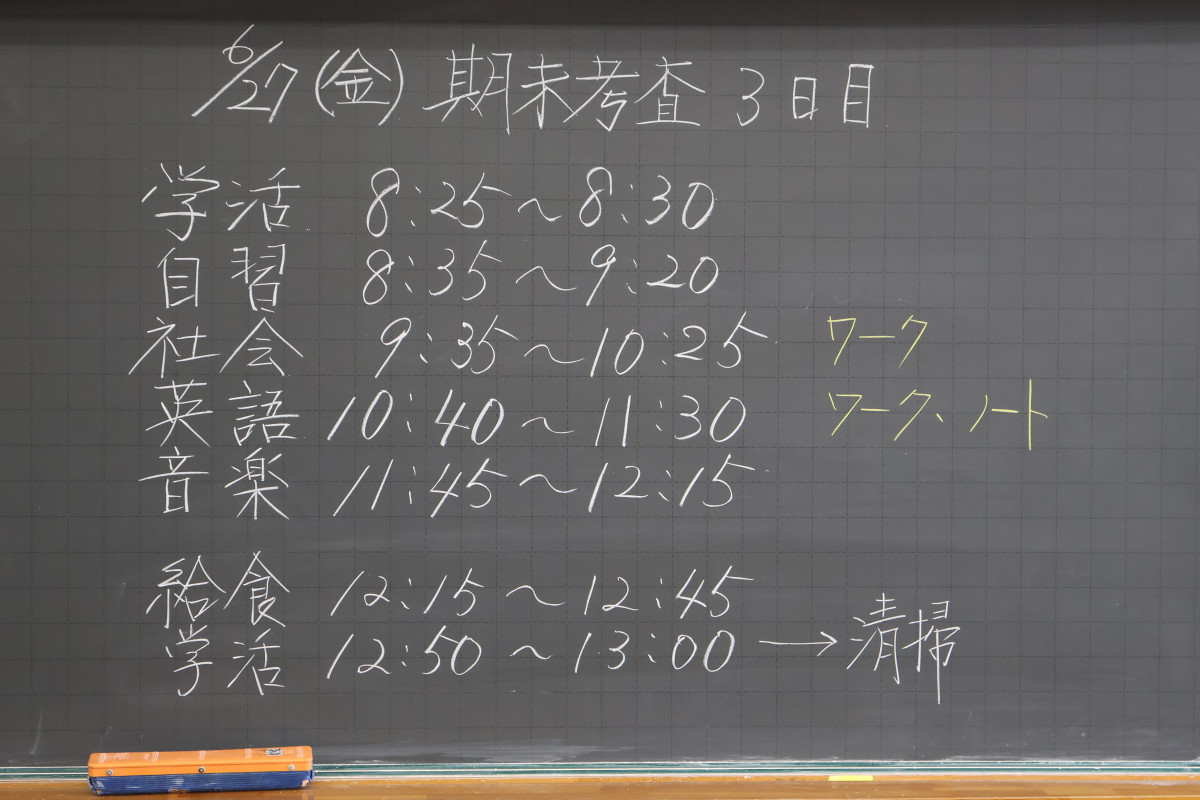 6/27(金) 期末考査 3日目
学活 8:25～8:30
自習 8:35～9:20
社会 9:35～10:25 ワーク
英語 10:40～11:30 ワーク、ノート
音楽 11:45～12:15
給食 12:15～12:45
学活 12:50～13:00→清掃